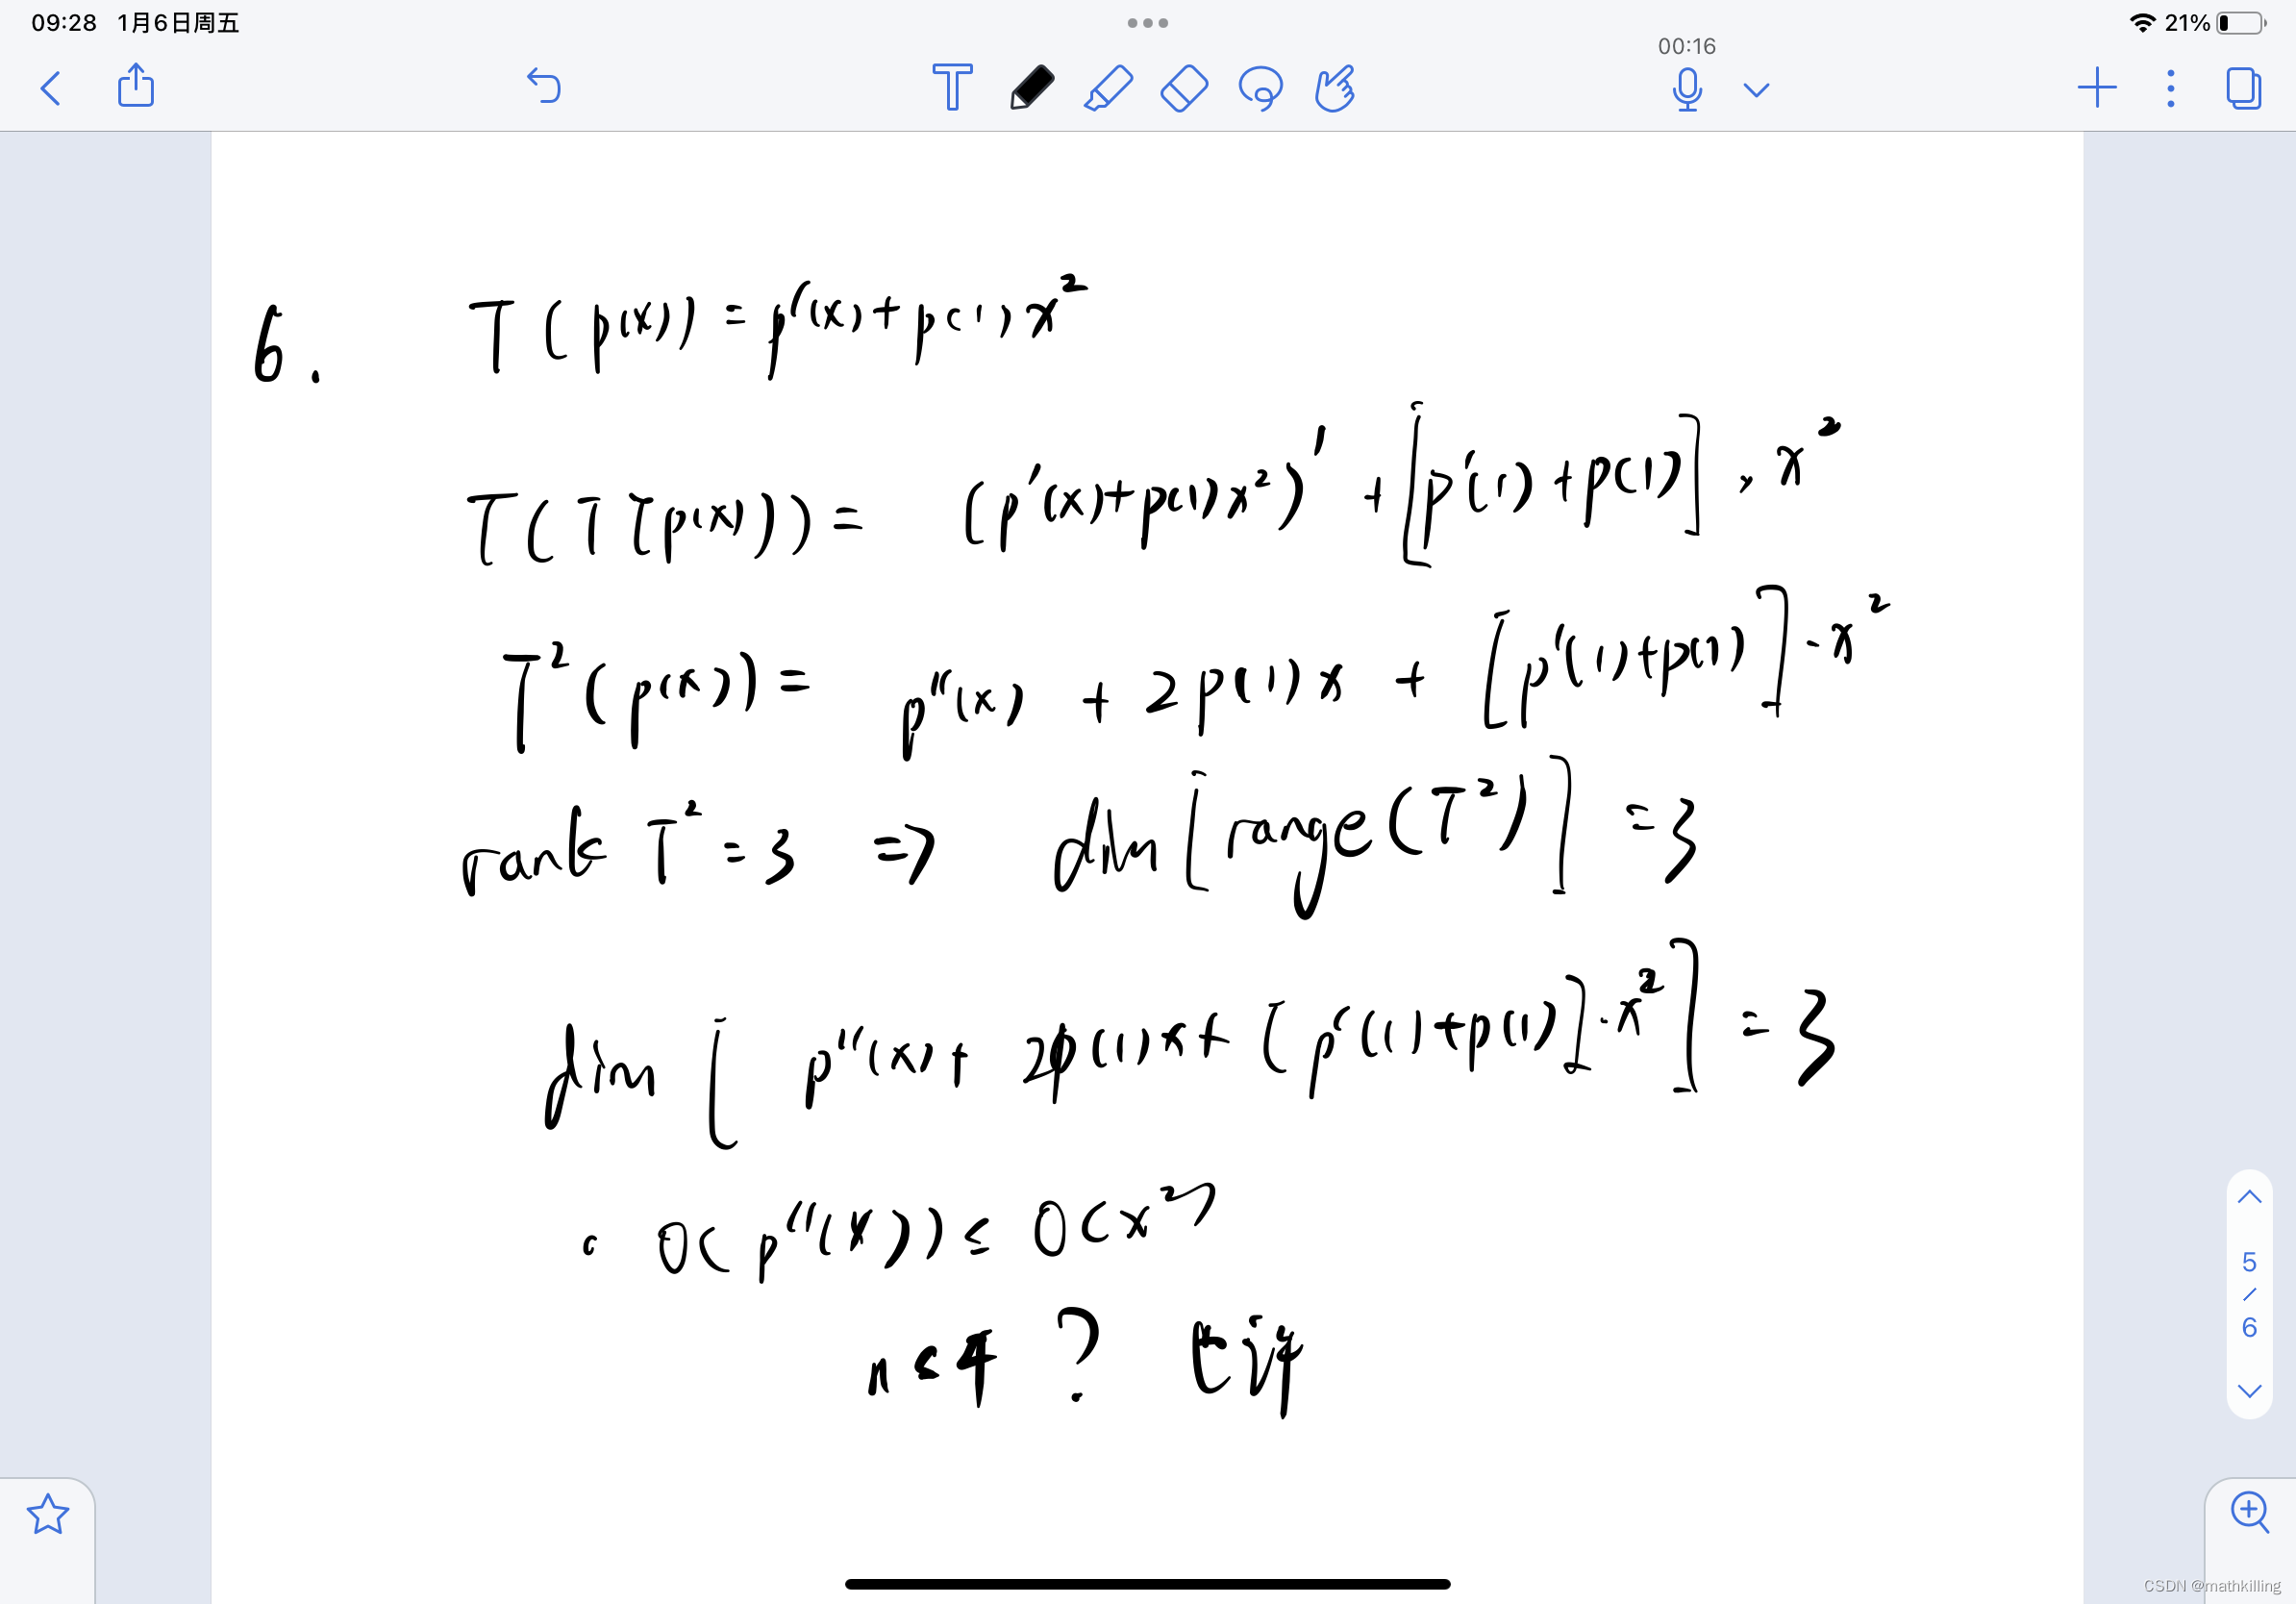 09:28 1月6日周五
21%
00:16
6. T(p(x)) = p'(x) + p(1) x²
T(T(p(x))) = (p'(x)+p(1)x²)' + [p'(1)+p(1)] · x²
T²(p(x)) = p''(x) + 2p(1)x + [p'(1)+p(1)] · x²
rank T² = 3 => dim[range(T²)] = 3
dim [p''(x)+ 2p(1)x+ [p'(1)+p(1)] · x²] = 3
O(p''(x)) ≤ O(x²)
n ≤ 4 ?
5
/
6
CSDN @mathkilling